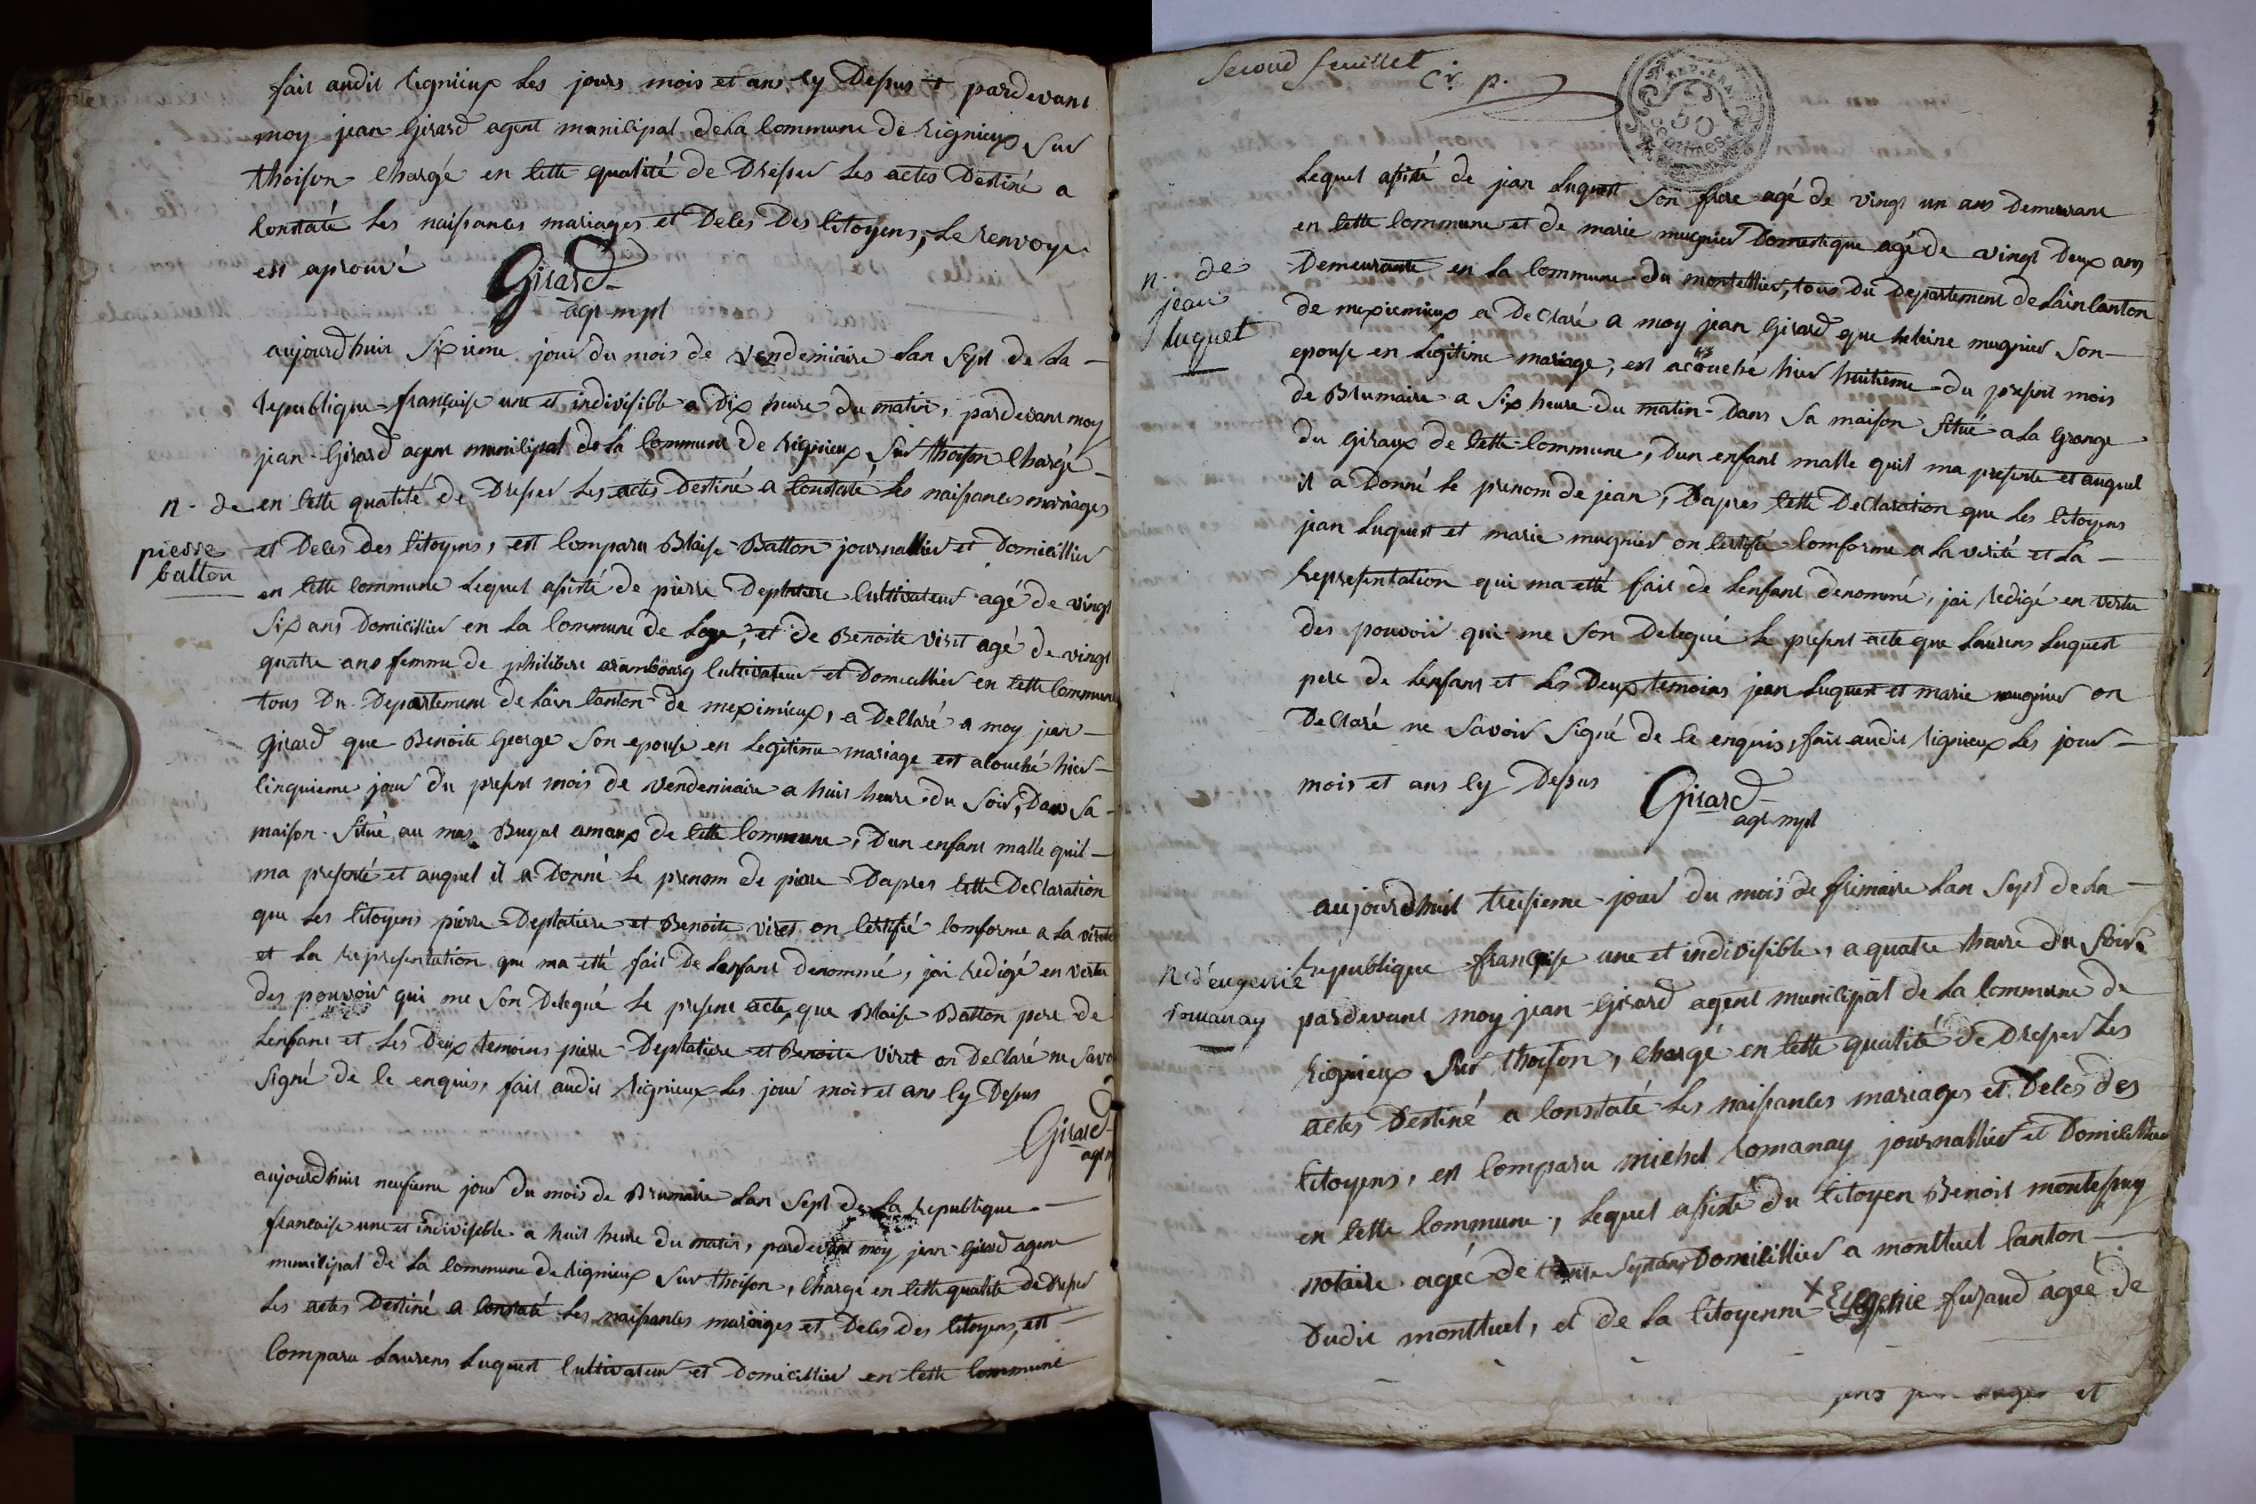 fait audit rignieux les jours mois et ans cy Dessus + pardevant
moy jean Girard agent municipal de la commune de rignieux sur
thoison chargé en cette qualité de Dresser les actes Destiné a
constaté les naissances mariages et Deces Des citoyens, le renvoye
est aprouvé
Girard
agt mpl
aujourdhuit sixieme jour du mois de vendemiaire lan sept de la
republique française une et indivisible a Dix heure du matin, pardevant moy
jean Girard agent municipal de la commune de rignieux sur thoison chargé
n. de
pierre
batton
en cette qualité de Dresser les actes Destiné a constaté les naissances mariages
et Deces des citoyens, est comparu Blaise Batton journallier et Domicillier
en cette commune lequel assisté de pierre Deplatiere cultivateur agé de vingt
six ans Domicillier en la commune de Loye, et de Benoite viret agé de vingt
quatre ans femme de philibert arambourg cultivateur et Domicillier en cette commune
tous Du Departement de Lain canton de meximieux, a Declaré a moy jean
Girard que Benoite George son epouse en legitime mariage est acouché hier
cinquieme jour du present mois de vendemiaire a huit heure du soir, Dans sa
maison situé au mas Buyat amaux de cette commune, Dun enfant malle quil
ma presenté et auquel il a Donné le prenom de pierre Dapres cette Declaration
que les citoyens pierre Deplatiere et Benoite viret on certifié comforme a la verité
et la representation que ma etté fait de lenfant denommé, jai redigé en vertu
des pouvoir qui me son Delegué le present acte, que Blaise Batton pere de
lenfant et les Deux temoins pierre Deplatiere et Benoite viret on Declaré ne savoir
signé de ce enquis, fait audit rignieux les jour mois et ans cy Dessus
Girard
agt
aujourdhuit neufieme jour du mois de Brumaire lan sept de la republique
francaise une et indivisible a huit heure du matin, pardevant moy jean Girard agent
municipal de la commune de rignieux sur thoison, chargé en cette qualité de Dresser
les actes Destiné a constaté les naissances mariages et Deces des citoyens, est
comparu Laurens Luquest cultivateur et Domicillier en cette commune
second feuillet
Cr. p.
REP. FRA.
50
centimes
lequel assisté de jean Luquest son frere agé de vingt un ans Demeurant
en cette commune et de marie mugnier Domestique agé de vingt Deux ans
n. de
jean
luquet
Demeurante en la commune du montellier, tous du Departement de Lain canton
de meximieux a Declaré a moy jean Girard que heleine mugnier son
epouse en legitime mariage, est acouché hier huitieme du present mois
de Brumaire a six heure du matin Dans sa maison situé a la Grange
du giraux de cette commune, Dun enfant malle quil ma presente et auquel
il a Donné le prenom de jean, Dapres cette Declaration que les citoyens
jean Luquest et marie mugnier on certifié comforme a la verité et la
representation qui ma etté fait de lenfant denommé, jai redigé en vertu
des pouvoir qui me son Delegué le present acte que Laurens Luquest
pere de lenfant et les Deux temoins jean Luquest et marie mugnier on
Declaré ne savoir signé de ce enquis, fait audit rignieux les jour
mois et ans cy Dessus
Girard
agt mpl
aujourdhuit treisieme jour du mois de frimaire lan sept de la
N. d'eugenie
romanay
republique française une et indivisible, a quatre heure du soir
pardevant moy jean Girard agent municipal de la commune de
rignieux sur thoison, chargé en cette qualité de Dresser les
actes Destiné a constaté les naissances mariages et Deces des
citoyens, est comparu michel romanay journallier et Domicillier
en cette commune, lequel assisté du citoyen Benoit montessuy
notaire agée de trente sept ans Domicillier a montluel canton
Dudit montluel, et de la citoyenne + Eugenie furaud agée de